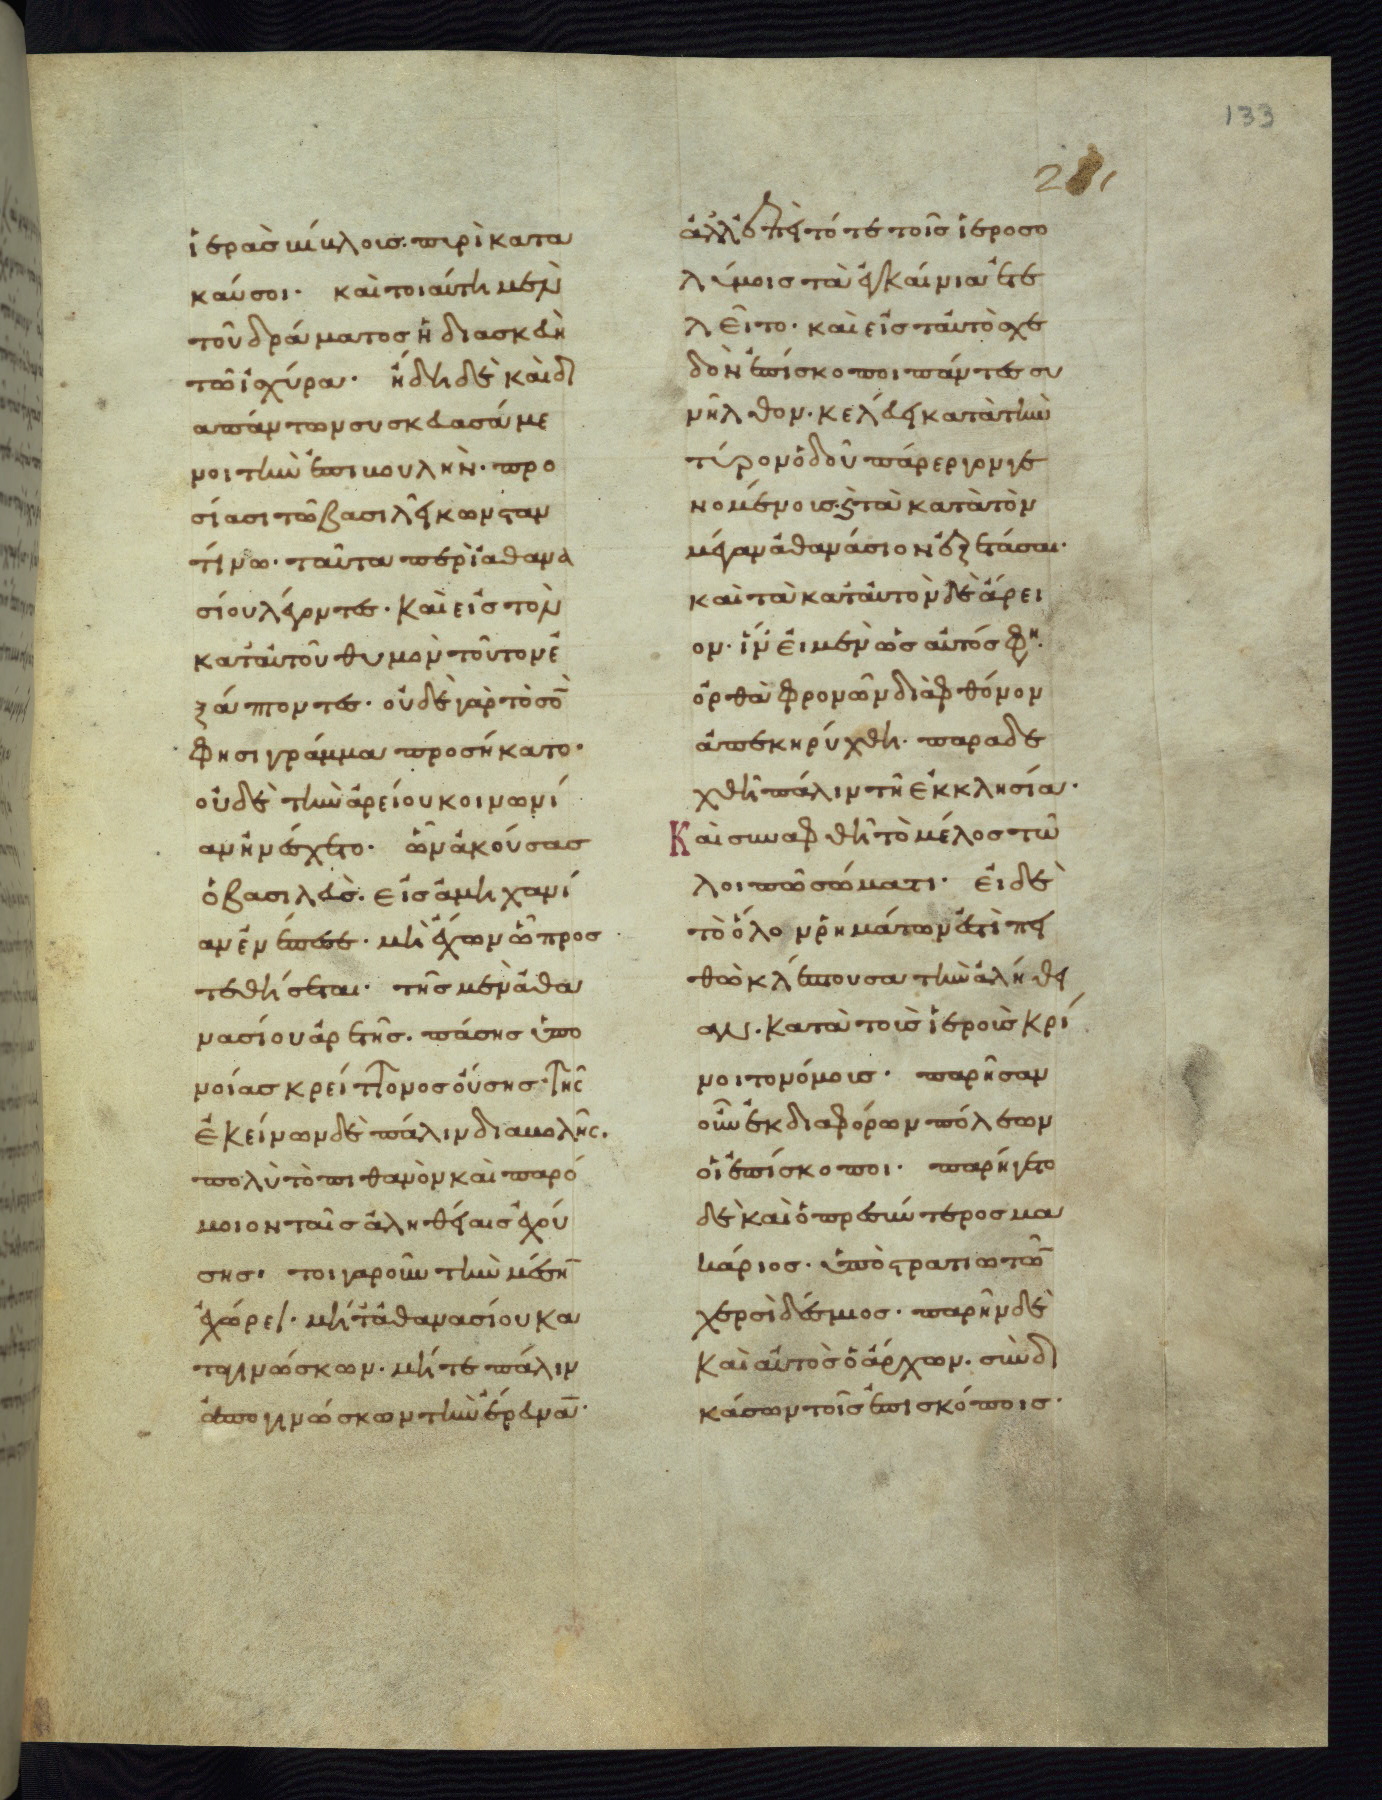 133
ἱερὰς βίβλους. πυρὶ κατα
καύσοι. καὶ τοιαύτη μὲν
τοῦ δράματος ἡ διασκευὴ
τῶ ἰσχύρα. ἤδη δὲ καὶ δι
απάντων συσκευασάμε
νοι τὴν ἐπιβουλὴν. προ
σίασι τῶ βασιλεῖ κωνσταν
τίνω. ταῦτα περὶ ἀθανα
σίου λέγοντες. καὶ εἰς τὸν
κατ' αὐτοῦ θυμὸν τοῦτον ἐ
ξάπτοντες. οὐδὲ γὰρ τὸ σὸν
φησι γράμμα προσήκατο.
οὐδὲ τὴν ἀρείου κοινωνί
αν ἠνέσχετο. ὧν ἀκούσας
ὁ βασιλεὺς. εἰς ἀμηχανί
αν ἐνέπεσε. μὴ ἔχων ὧ προσ
τεθήσεται. τῆς μὲν ἀθα
νασίου ἀρετῆς. πάσης ὑπο
νοίας κρείττονος οὔσης. τῆς
ἐκείνων δὲ πάλιν διαβολῆς.
πολὺ τὸ πιθανὸν καὶ παρό
μοιον ταῖς ἀληθείαις ἐχού
σης. τοιγαροῦν τὴν μέσην
ἐχώρει. μήτ' ἀθανασίου κα
ταγινώσκων. μήτε πάλιν
ἀπογινώσκων τὴν ἔρευναν.
ἀλλ' ἐπεὶ τότε τοῖς ἱεροσο
λύμοις τὰ ἐγκαίνια ἐτε
λεῖτο. καὶ εἰς ταυτὸ σχε
δὸν ἐπίσκοποι πάντες συ
νῆλθον. κελεύει κατὰ τὴν
τύρον ὁδοῦ πάρεργον γε
νομένοις. τὰ κατὰ τὸν
μέγαν ἀθανάσιον ἐξετάσαι.
καὶ τὰ κατ' αὐτὸν δὲ ἄρει
ον. ἵν' εἰ μὲν ὡς αὐτός φη.
ὀρθὰ φρονῶν διὰ φθόνον
ἀπεκηρύχθη. παραδε
χθῆ πάλιν τῆ ἐκκλησία.
Καὶ συναφθῆ τὸ μέλος τῶ
λοιπῶ σώματι. εἰ δὲ
τὸ ὅλον ῥημάτων ἐστὶ πει
θὼ κλέπτουσα τὴν ἀλήθει
αν. κατὰ τοὺς ἱεροὺς κρί
νοιτο νόμους. παρῆσαν
οὖν ἐκ διαφόρων πόλεων
οἱ ἐπίσκοποι. παρήγετο
δὲ καὶ ὁ πρεσβύτερος μα
κάριος. ὑπὸ στρατιωτῶν
χερσὶ δέσμιος. παρῆν δὲ
καὶ αὐτὸς ὁ ἄρχων. σὺν δι
κάσων τοῖς ἐπισκόποις.